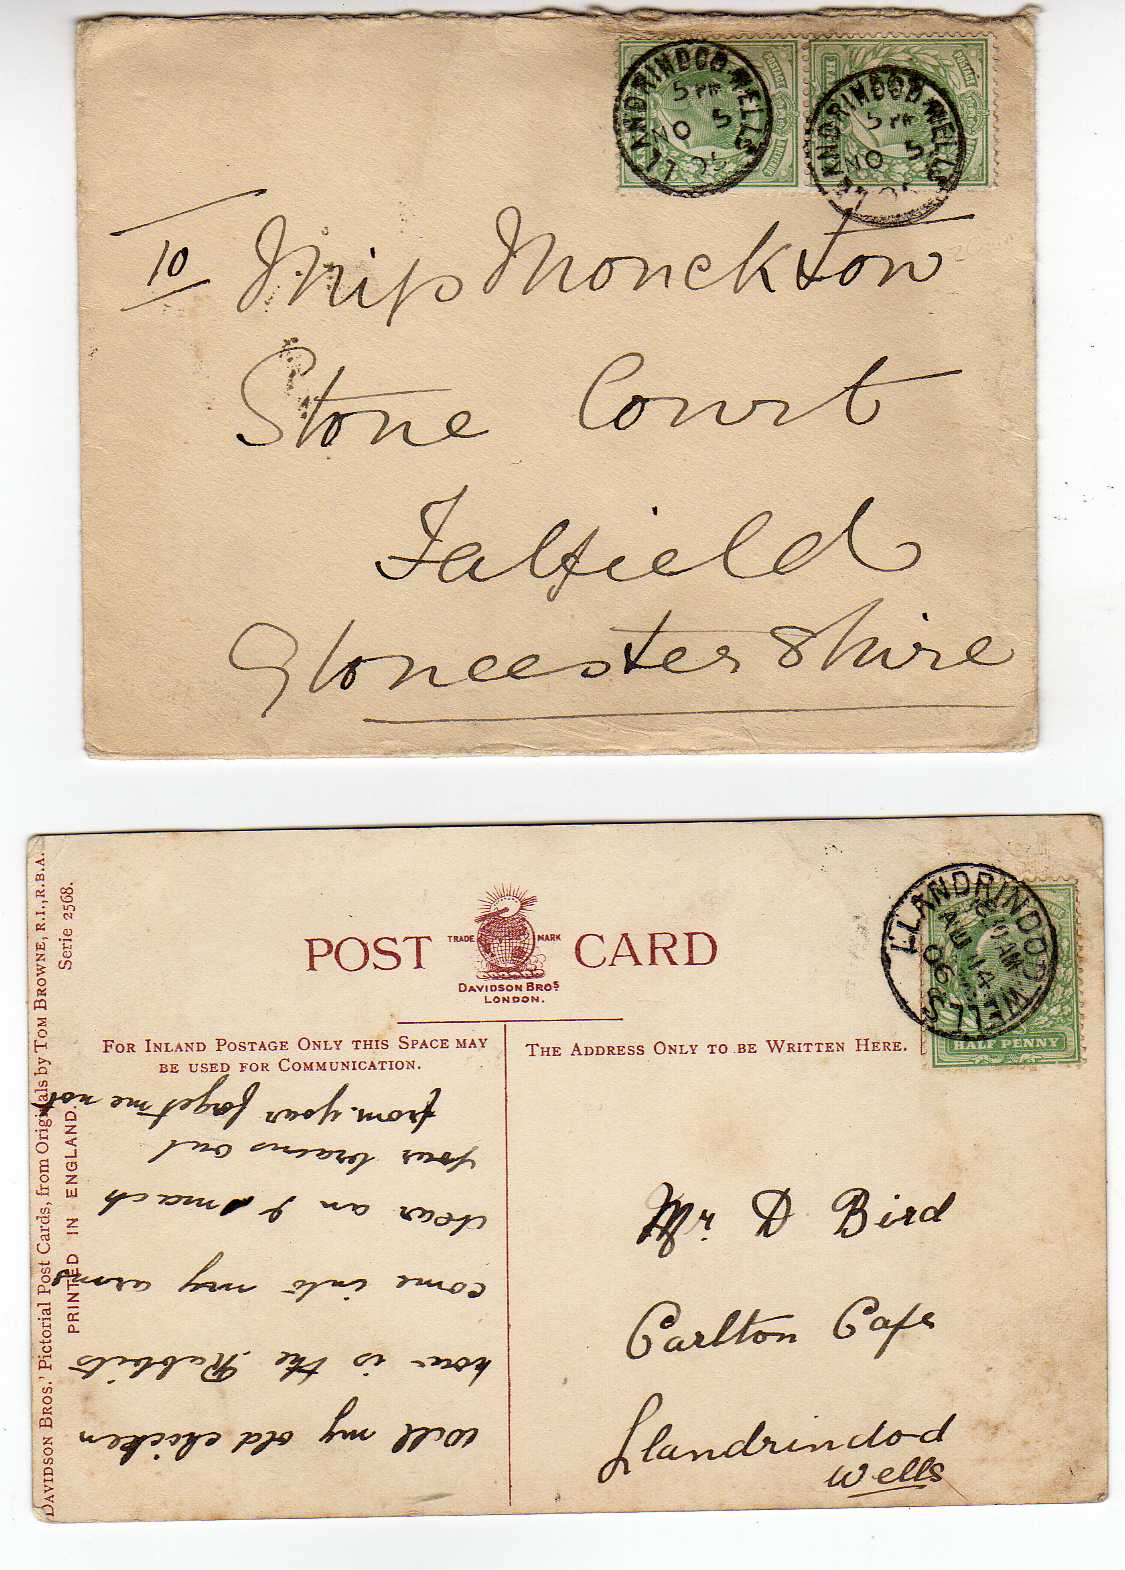 LLANDRINDOD-WELLS
5 PM
NO 5
05
LLANDRINDOD-WELLS
5 PM
NO 5
To Miss Monckton
Stone Court
Falfield
Gloucestershire
DAVIDSON BROS.' Pictorial Post Cards, from Originals by TOM BROWNE, R.I., R.B.A.
Serie 2568.
PRINTED IN ENGLAND.
POST CARD
TRADE MARK
DAVIDSON BROS.
LONDON.
FOR INLAND POSTAGE ONLY THIS SPACE MAY
BE USED FOR COMMUNICATION.
THE ADDRESS ONLY TO BE WRITTEN HERE.
LLANDRINDOD WELLS
AU 14
06
HALF PENNY
Well my old chicken
how is the Rabbits
come into my arms
dear an I smack
your brains out
from your forget me not
Mr. D Bird
Carlton Cafe
Llandrindod
Wells